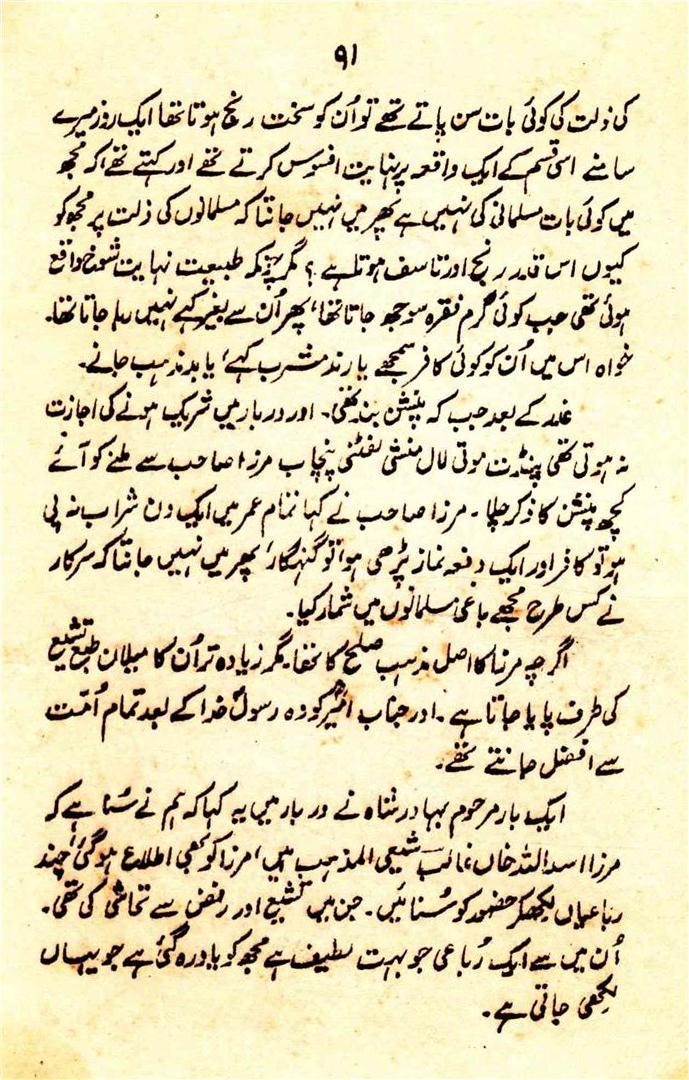 ۹۱
کی ذلت کی کوئی بات سن پاتے تھے تو اُن کو سخت رنج ہوتا تھا ایک روز میرے
سامنے اسی قسم کے ایک واقعہ پر نہایت افسوس کرتے تھے اور کہتے تھے کہ مجھ
میں کوئی بات مسلمانی کی نہیں ہے پھر میں نہیں جانتا کہ مسلمانوں کی ذلت پر مجھ کو
کیوں اس قدر رنج اور تاسف ہوتا ہے ؟ مگر چونکہ طبیعت نہایت شوخ واقع
ہوئی تھی جب کوئی گرم فقرہ سوجھ جاتا تھا، پھر اُن سے بغیر کہے نہیں رہا جاتا تھا۔
خواہ اس میں اُن کو کوئی کافر سمجھے یا رند مشرب کہے، یا بد مذہب جانے۔
غدر کے بعد جب کہ پنشن بند تھی۔ اور دربار میں شریک ہونے کی اجازت
نہ ہوتی تھی پنڈت موتی لال منشی لفٹنی پنجاب مرزا صاحب سے ملنے کو آئے
کچھ پنشن کا ذکر چلا۔ مرزا صاحب نے کہا تمام عمر میں ایک دن شراب نہ پی
ہو تو کافر اور ایک دفعہ نماز پڑھی ہو تو گنہگار، پھر میں نہیں جانتا کہ سرکار
نے کس طرح مجھے باغی مسلمانوں میں شمار کیا۔
اگرچہ مرزا کا اصل مذہب صلح کل تھا۔ مگر زیادہ تر اُن کا میلان طبع تشیع
کی طرف پایا جاتا ہے۔ اور جناب امیرؑ کو وہ رسولؐ خدا کے بعد تمام اُمّت
سے افضل جانتے تھے۔
ایک بار مرحوم بہادر شاہ نے دربار میں یہ کہا کہ ہم نے سُنا ہے کہ
مرزا اسد اللہ خاں غالب شیعی المذہب ہیں، مرزا کو بھی اطلاع ہو گئی، چند
رباعیاں لکھکر حضور کو سُنائیں۔ جن میں تشیع اور رفض سے تحاشی کی تھی۔
اُن میں سے ایک رُباعی جو بہت لطیف ہے مجھ کو یاد رہ گئی ہے جو یہاں
لکھی جاتی ہے۔